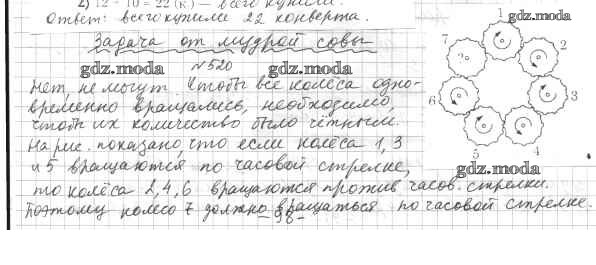 2) 12 + 10 = 22 (к) — всего купили.
Ответ: всего купили 22 конверта.
Задача от мудрой совы
gdz.moda
gdz.moda
№520
gdz.moda
Нет, не могут. Чтобы все колёса одно-
временно вращались, необходимо,
чтобы их количество было чётным.
На рис. показано, что если колёса 1, 3
и 5 вращаются по часовой стрелке,
то колёса 2, 4, 6 вращаются против часов. стрелки.
Поэтому колесо 7 должно вращаться по часовой стрелке.
- 98 -
1
2
3
4
5
6
7
gdz.moda
gdz.moda